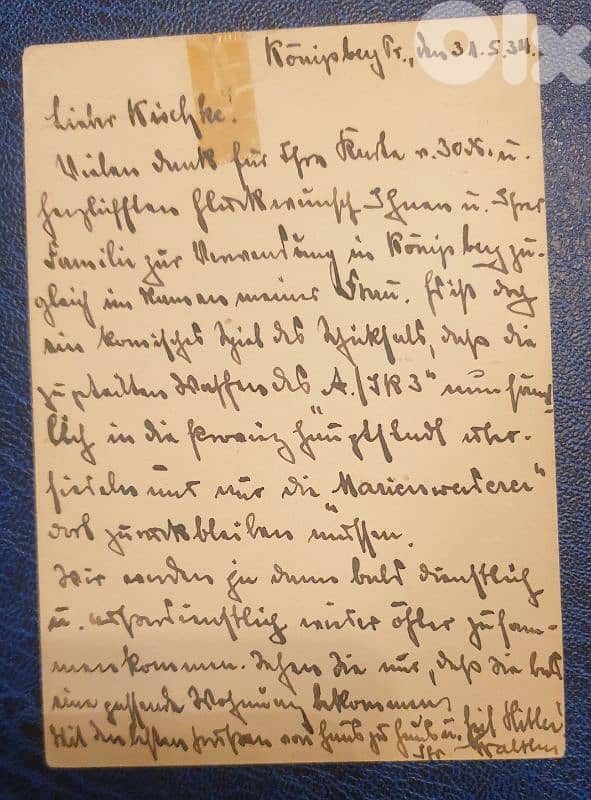 Königsberg Pr., den 31.5.34.
Lieber Kischke!
Vielen Dank für Ihre Karte v. 30. ds. u.
herzlichsten Glückwunsch Ihnen u. Ihrer
Familie zur Verwendung in Königsberg zu-
gleich im Namen meiner Frau. Es ist doch
ein komisches Spiel des Schicksals, daß die
zugeteilten Waffen des "A./IR 3" nun sämt-
lich in die Provinzhauptstadt über-
siedeln und nur die "Marienwerderer"
dort zurückbleiben müssen.
Wir werden ja dann bald dienstlich
u. außerdienstlich wieder öfter zusam-
menkommen. Sehen Sie nur, daß Sie bald
eine passende Wohnung bekommen.
Mit den besten Grüßen von Haus zu Haus u. Heil Hitler
Ihr
olx